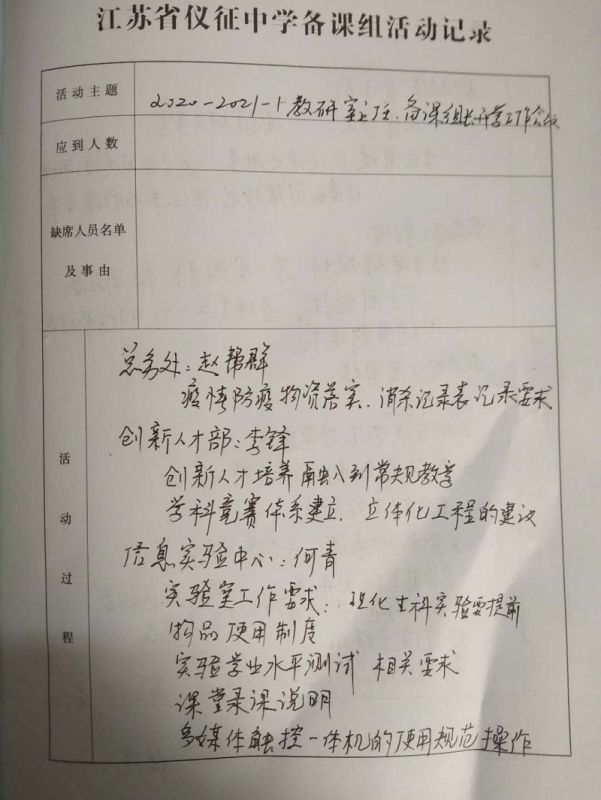 江苏省仪征中学备课组活动记录
活动主题
2020-2021-1教研室主任、备课组长开学工作会议
应到人数
缺席人员名单
及事由
活动过程
总务处:赵帮群
疫情防疫物资落实、消杀记录表记录要求
创新人才部:李锋
创新人才培养融入到常规教学
学科竞赛体系建立,立体化工程的建议
信息实验中心:何青
实验室工作要求:理化生科实验要提前
物品使用制度
实验学业水平测试 相关要求
课堂录课说明
多媒体触控一体机的使用规范操作